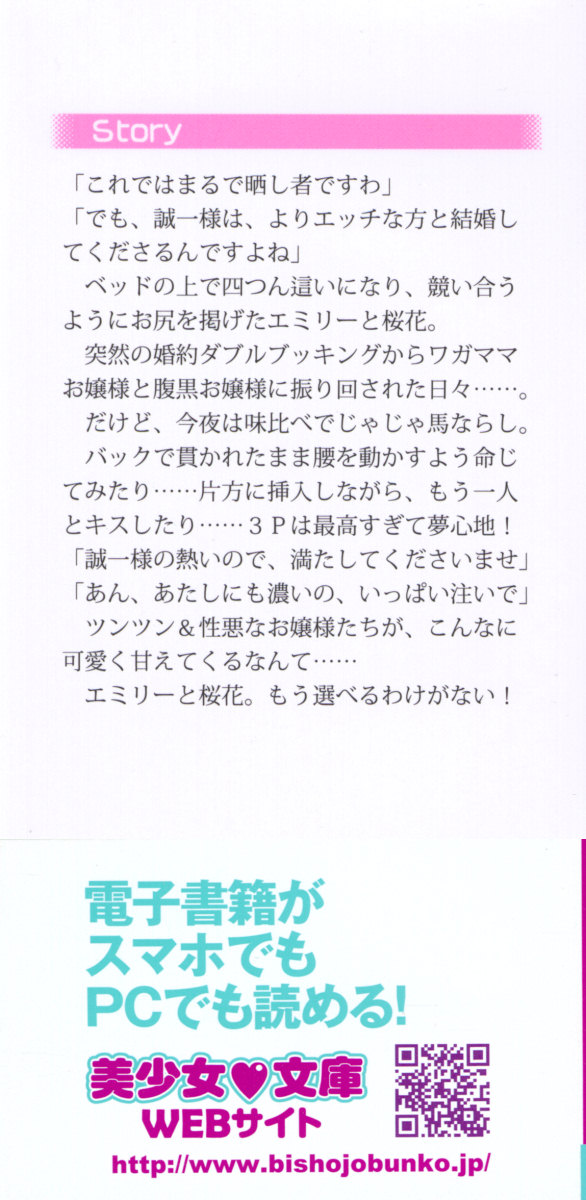 Story
「これではまるで晒し者ですわ」
「でも、誠一様は、よりエッチな方と結婚し
てくださるんですよね」
　ベッドの上で四つん這いになり、競い合う
ようにお尻を掲げたエミリーと桜花。
　突然の婚約ダブルブッキングからワガママ
お嬢様と腹黒お嬢様に振り回された日々……。
　だけど、今夜は味比べでじゃじゃ馬ならし。
　バックで貫かれたまま腰を動かすよう命じ
てみたり……片方に挿入しながら、もう一人
とキスしたり……３Ｐは最高すぎて夢心地！
「誠一様の熱いので、満たしてくださいませ」
「あん、あたしにも濃いの、いっぱい注いで」
　ツンツン＆性悪なお嬢様たちが、こんなに
可愛く甘えてくるなんて……
　エミリーと桜花。もう選べるわけがない！
電子書籍が
スマホでも
PCでも読める!
美少女♥文庫
WEBサイト
http://www.bishojobunko.jp/